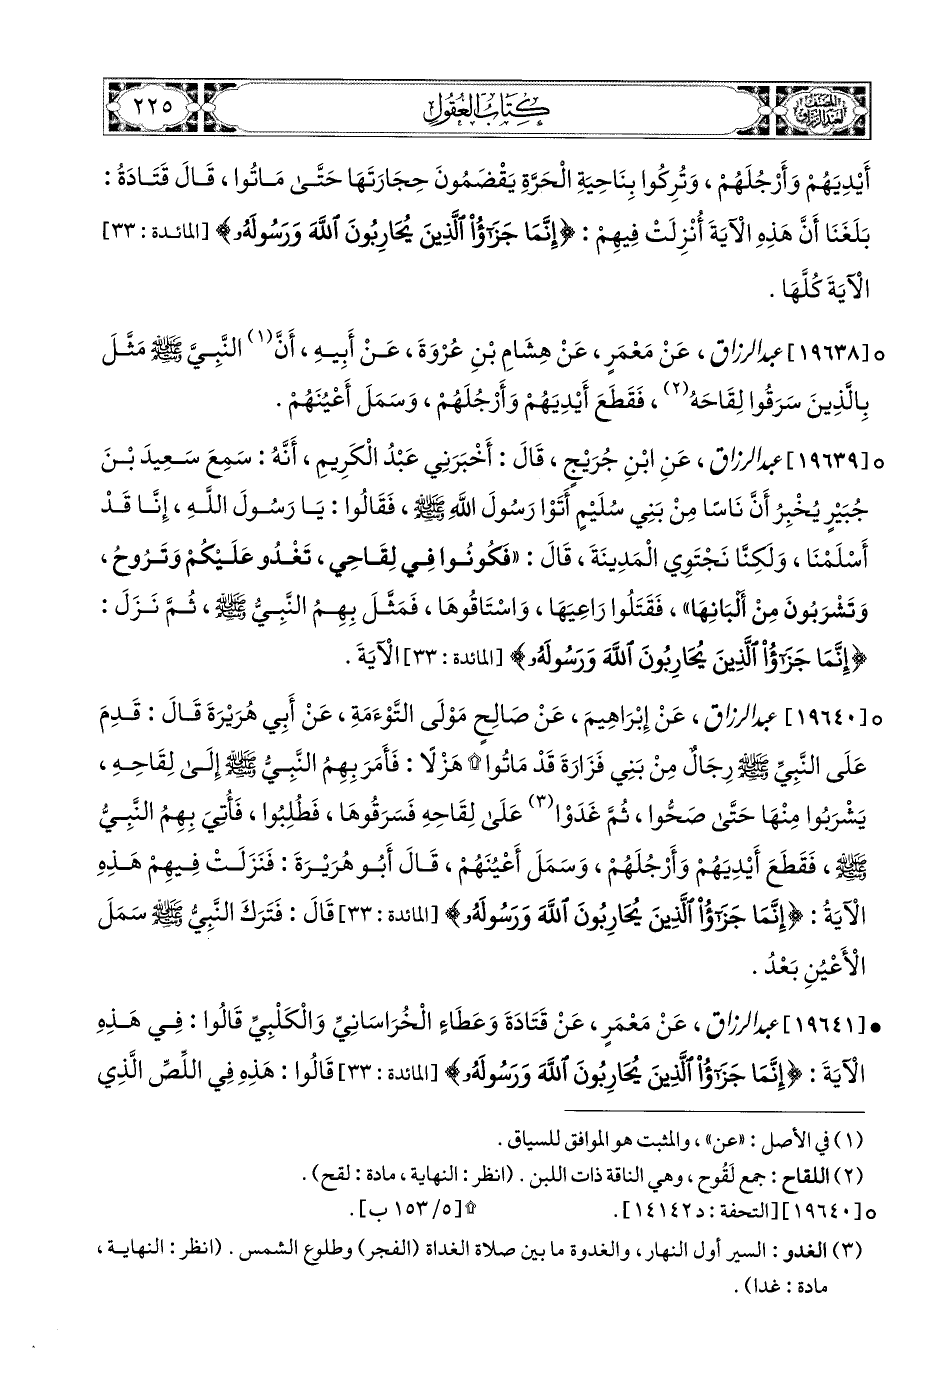 المصنف لعبد الرزاق كتاب العقول ٢٢٥
أَيْدِيَهُمْ وَأَرْجُلَهُمْ ، وَتُرِكُوا بِنَاحِيَةِ الْحَرَّةِ يَقْضَمُونَ حِجَارَتَهَا حَتَّىٰ مَاتُوا ، قَالَ قَتَادَةُ :
بَلَغَنَا أَنَّ هَذِهِ الْآيَةَ أُنْزِلَتْ فِيهِمْ : ﴿إِنَّمَا جَزَٰٓؤُا۟ ٱلَّذِينَ يُحَارِبُونَ ٱللَّهَ وَرَسُولَهُۥ﴾ [المائدة : ٣٣]
الْآيَةَ كُلَّهَا .
٥ [١٩٦٣٨] عبد الرزاق ، عَنْ مَعْمَرٍ ، عَنْ هِشَامِ بْنِ عُرْوَةَ ، عَنْ أَبِيهِ ، أَنَّ (١) النَّبِيَّ ﷺ مَثَّلَ
بِالَّذِينَ سَرَقُوا لِقَاحَهُ (٢) ، فَقَطَعَ أَيْدِيَهُمْ وَأَرْجُلَهُمْ ، وَسَمَلَ أَعْيُنَهُمْ .
٥ [١٩٦٣٩] عبد الرزاق ، عَنِ ابْنِ جُرَيْجٍ ، قَالَ : أَخْبَرَنِي عَبْدُ الْكَرِيمِ ، أَنَّهُ : سَمِعَ سَعِيدَ بْنَ
جُبَيْرٍ يُخْبِرُ أَنَّ نَاسًا مِنْ بَنِي سُلَيْمٍ أَتَوْا رَسُولَ اللَّهِ ﷺ ، فَقَالُوا : يَا رَسُولَ اللَّهِ ، إِنَّا قَدْ
أَسْلَمْنَا ، وَلَكِنَّا نَجْتَوِي الْمَدِينَةَ ، قَالَ : «فَكُونُوا فِي لِقَاحِي ، تَغْدُو عَلَيْكُمْ وَتَرُوحُ ،
وَتَشْرَبُونَ مِنْ أَلْبَانِهَا» ، فَقَتَلُوا رَاعِيَهَا ، وَاسْتَاقُوهَا ، فَمَثَّلَ بِهِمُ النَّبِيُّ ﷺ ، ثُمَّ نَزَلَ :
﴿إِنَّمَا جَزَٰٓؤُا۟ ٱلَّذِينَ يُحَارِبُونَ ٱللَّهَ وَرَسُولَهُۥ﴾ [المائدة : ٣٣] الْآيَةَ .
٥ [١٩٦٤٠] عبد الرزاق ، عَنْ إِبْرَاهِيمَ ، عَنْ صَالِحٍ مَوْلَى التَّوْءَمَةِ ، عَنْ أَبِي هُرَيْرَةَ قَالَ : قَدِمَ
عَلَى النَّبِيِّ ﷺ رِجَالٌ مِنْ بَنِي فَزَارَةَ قَدْ مَاتُوا ۩ هَزْلًا : فَأَمَرَ بِهِمُ النَّبِيُّ ﷺ إِلَىٰ لِقَاحِهِ ،
يَشْرَبُوا مِنْهَا حَتَّىٰ صَحُّوا ، ثُمَّ غَدَوْا (٣) عَلَىٰ لِقَاحِهِ فَسَرَقُوهَا ، فَطُلِبُوا ، فَأُتِيَ بِهِمُ النَّبِيُّ
ﷺ ، فَقَطَعَ أَيْدِيَهُمْ وَأَرْجُلَهُمْ ، وَسَمَلَ أَعْيُنَهُمْ ، قَالَ أَبُو هُرَيْرَةَ : فَنَزَلَتْ فِيهِمْ هَذِهِ
الْآيَةُ : ﴿إِنَّمَا جَزَٰٓؤُا۟ ٱلَّذِينَ يُحَارِبُونَ ٱللَّهَ وَرَسُولَهُۥ﴾ [المائدة : ٣٣] قَالَ : فَتَرَكَ النَّبِيُّ ﷺ سَمَلَ
الْأَعْيُنِ بَعْدُ .
• [١٩٦٤١] عبد الرزاق ، عَنْ مَعْمَرٍ ، عَنْ قَتَادَةَ وَعَطَاءٍ الْخُرَاسَانِيِّ وَالْكَلْبِيِّ قَالُوا : فِي هَذِهِ
الْآيَةَ : ﴿إِنَّمَا جَزَٰٓؤُا۟ ٱلَّذِينَ يُحَارِبُونَ ٱللَّهَ وَرَسُولَهُۥ﴾ [المائدة : ٣٣] قَالُوا : هَذِهِ فِي اللِّصِّ الَّذِي
(١) في الأصل : «عن» ، والمثبت هو الموافق للسياق .
(٢) اللقاح : جمع لَقُوح ، وهي الناقة ذات اللبن . (انظر : النهاية ، مادة : لقح) .
٥ [١٩٦٤٠] [التحفة : د ١٤١٤٢] . ۩ [٥/ ١٥٣ ب] .
(٣) الغدو : السير أول النهار ، والغدوة ما بين صلاة الغداة (الفجر) وطلوع الشمس . (انظر : النهاية ،
مادة : غدا) .